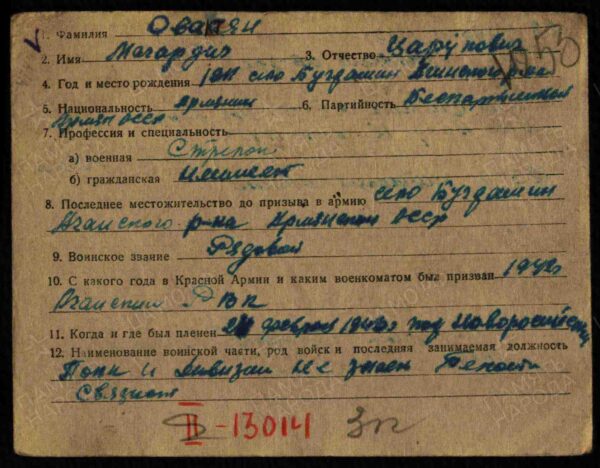 1. Фамилия Овакян
2. Имя Магардич 3. Отчество Царупович
4. Год и место рождения село Бугдашин
5. Национальность Армянин 6. Партийность Беспартийный
Армян ССР
7. Профессия и специальность
а) военная Стрелок
б) гражданская
8. Последнее местожительство до призыва в армию село Бугдашин
Агинского р-на Армянской ССР
9. Воинское звание Рядовой
10. С какого года в Красной Армии и каким военкоматом был призван 1942г
Агинским РВК
11. Когда и где был пленен 24 февраля 1943г под Новороссийском
12. Наименование воинской части, род войск и последняя занимаемая должность
Полк и дивизии не знает
Связист
II-13014 Зп